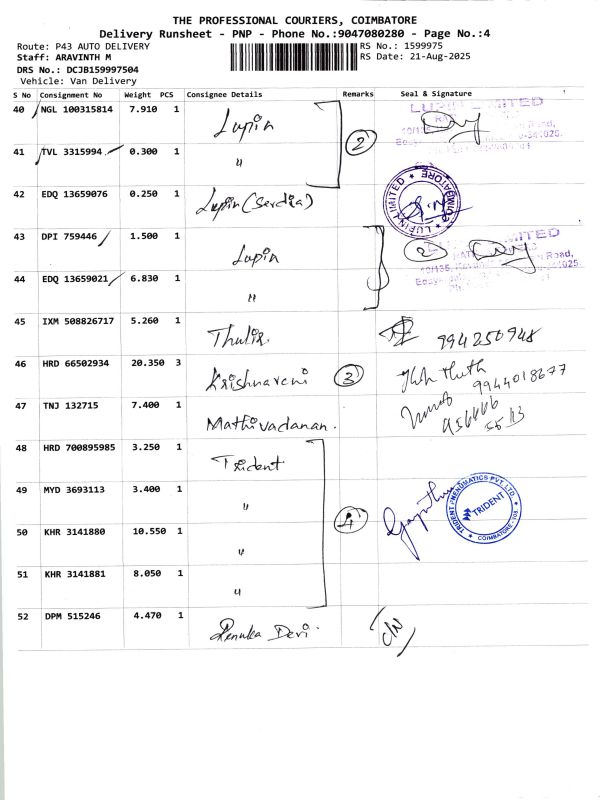 THE PROFESSIONAL COURIERS, COIMBATORE
Delivery Runsheet - PNP - Phone No.:9047080280 - Page No.:4
Route: P43 AUTO DELIVERY RS No.: 1599975
Staff: ARAVINTH M RS Date: 21-Aug-2025
DRS No.: DCJB159997504
Vehicle: Van Delivery
S No Consignment No Weight PCS Consignee Details Remarks Seal & Signature
40 NGL 100315814 7.910 1 Lupin LUPIN LIMITED
41 TVL 3315994 0.300 1 " 2
42 EDQ 13659076 0.250 1 Lupin (Serdia) LUPIN LIMITED COIMBATORE
43 DPI 759446 1.500 1 Lupin 2 LIMITED
44 EDQ 13659021 6.830 1 " Road,
45 IXM 508826717 5.260 1 994250948
46 HRD 66502934 20.350 3 Krishnaveni 3 9944018677
47 TNJ 132715 7.400 1 Mathivadanan.
48 HRD 700895985 3.250 1 Trident
49 MYD 3693113 3.400 1 " TRIDENT PNEUMATICS PVT LTD. TRIDENT COIMBATORE
50 KHR 3141880 10.550 1 " 4
51 KHR 3141881 8.050 1 "
52 DPM 515246 4.470 1 Renuka Devi.